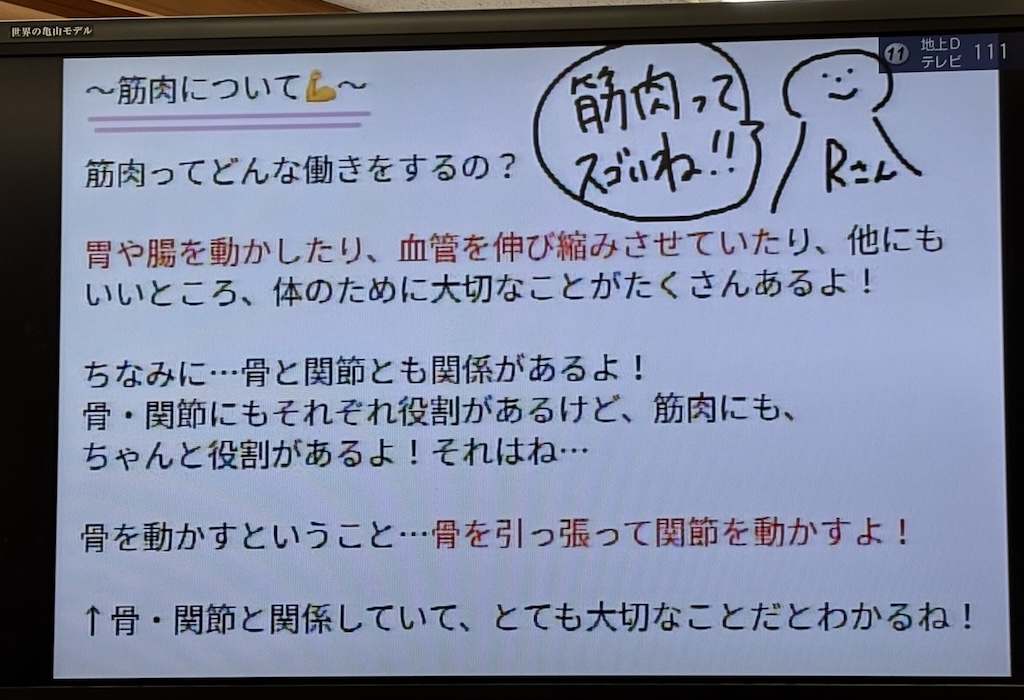 世界の亀山モデル
11 地上D テレビ 111
～筋肉について💪～
筋肉って
スゴいね!!
Rさん
筋肉ってどんな働きをするの？
胃や腸を動かしたり、血管を伸び縮みさせていたり、他にも
いいところ、体のために大切なことがたくさんあるよ！
ちなみに…骨と関節とも関係があるよ！
骨・関節にもそれぞれ役割があるけど、筋肉にも、
ちゃんと役割があるよ！それはね…
骨を動かすということ…骨を引っ張って関節を動かすよ！
↑骨・関節と関係していて、とても大切なことだとわかるね！